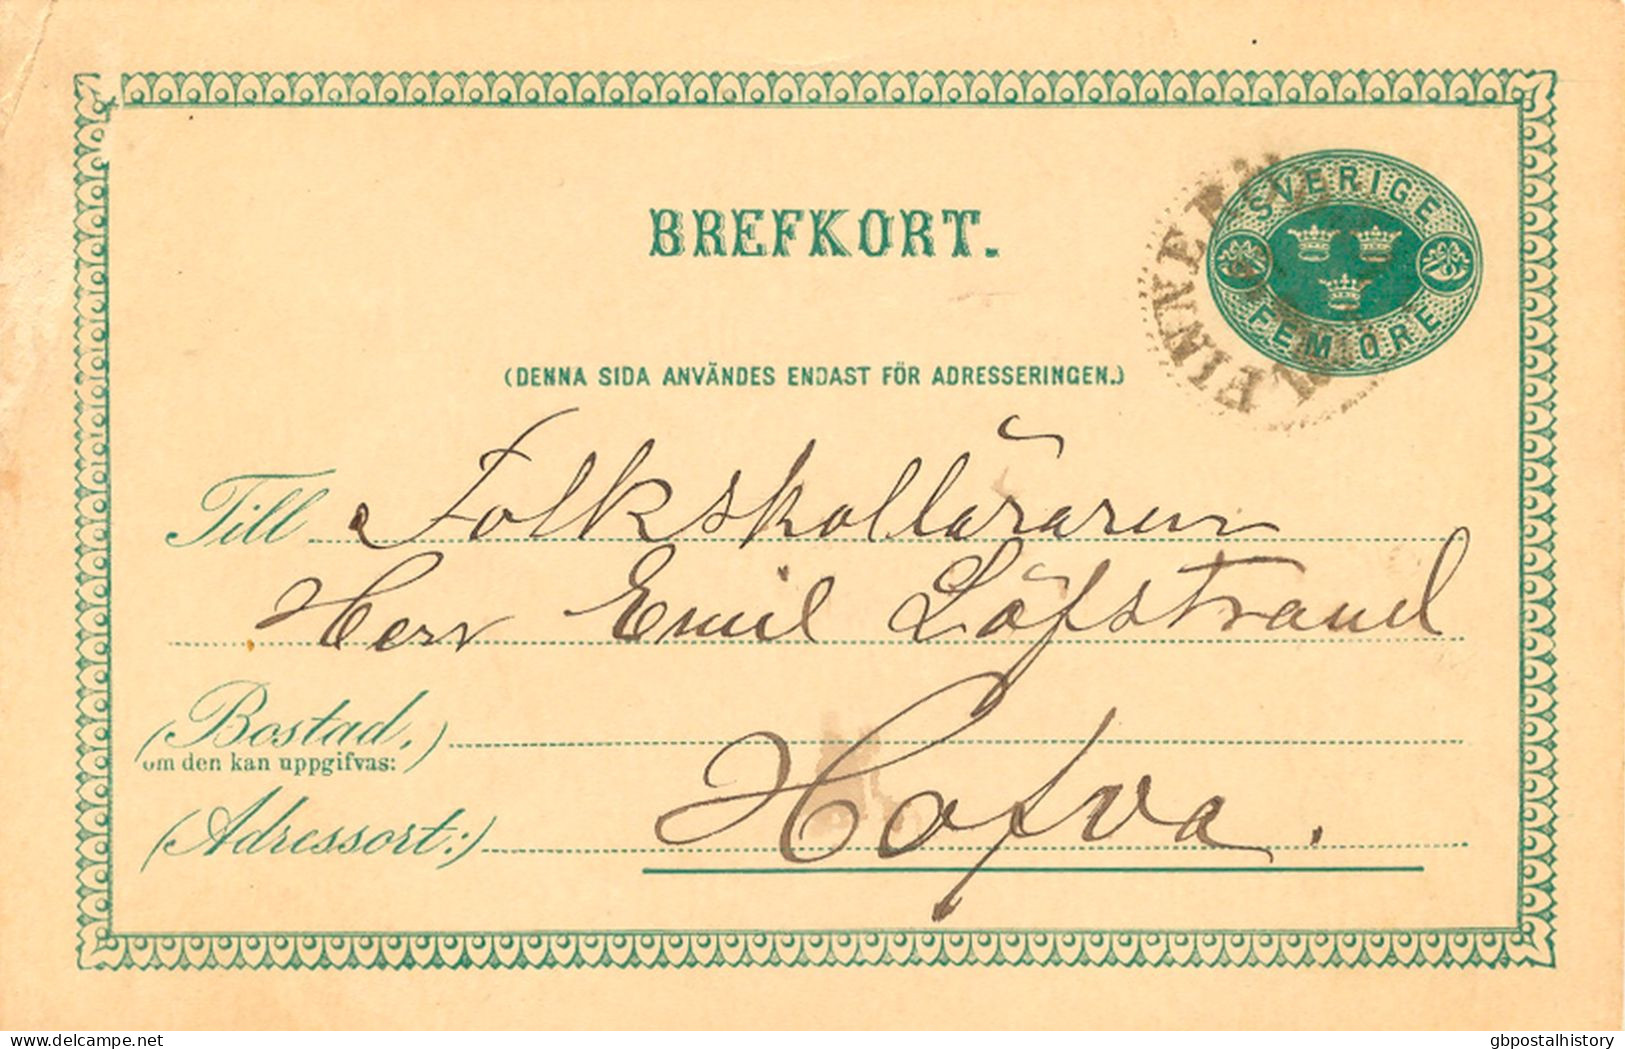 BREFKORT.
SVERIGE
FEM ÖRE
(DENNA SIDA ANVÄNDES ENDAST FÖR ADRESSERINGEN.)
Till Folkskolläraren
Herr Emil Löfstrand
(Bostad,)
om den kan uppgifvas:)
(Adressort:) Hofva.
delcampe.net
gbpostalhistory